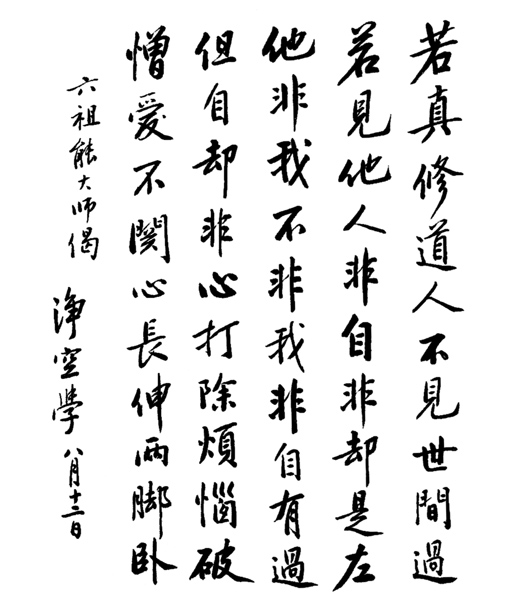 若真修道人不見世間過
若見他人非自非却是左
他非我不非我非自有過
但自却非心打除煩惱破
憎愛不關心長伸兩脚臥
六祖能大师偈
淨空學
八月十三日